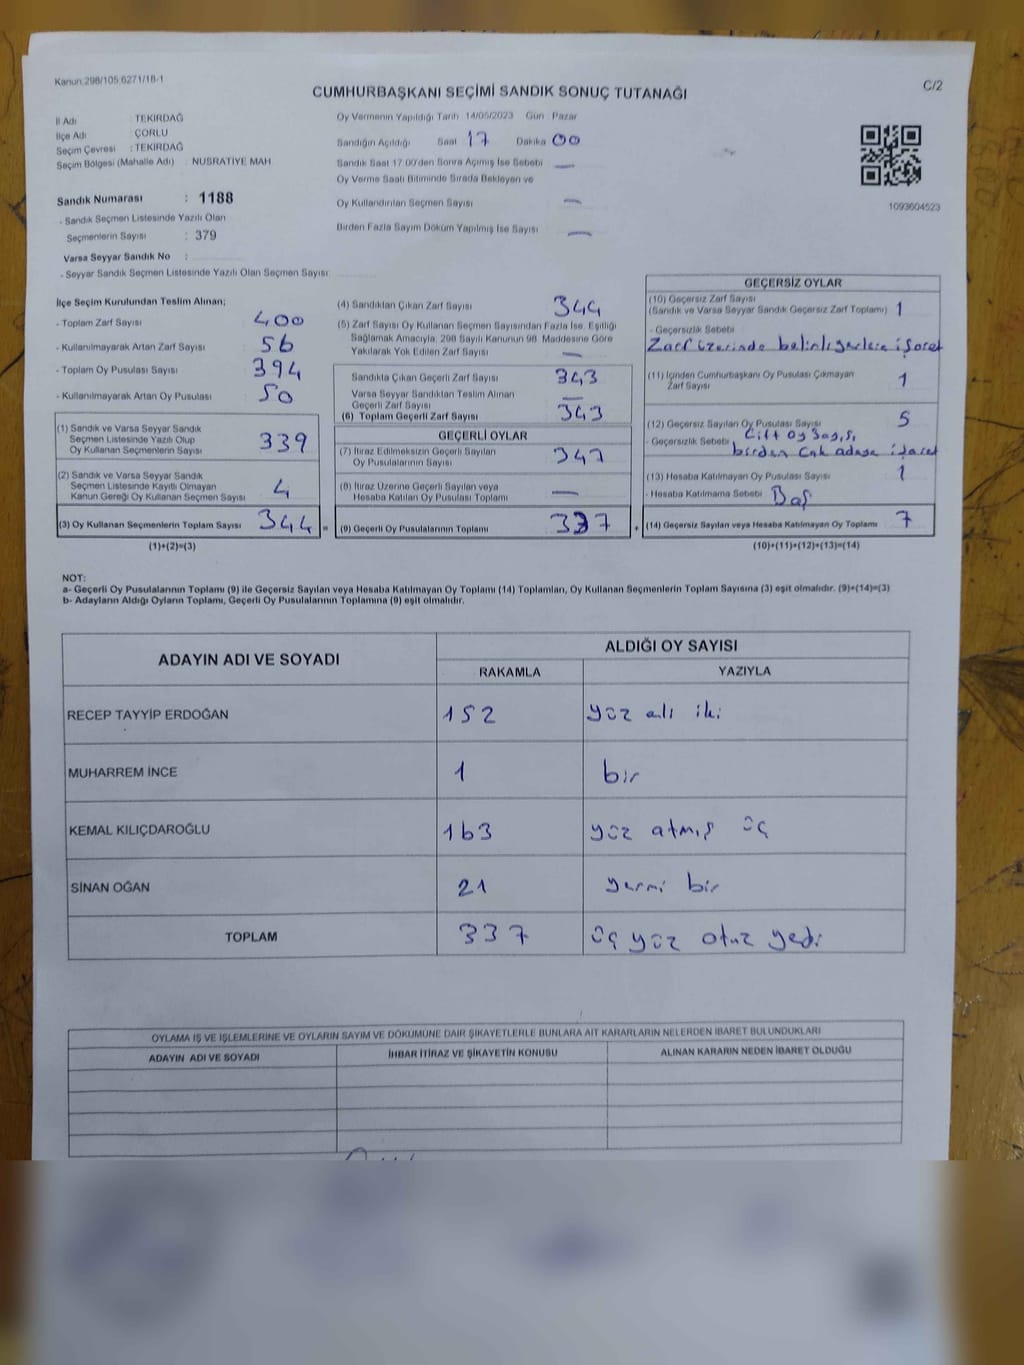 Kanun:298/105 6271/18-1
C/2
CUMHURBAŞKANI SEÇİMİ SANDIK SONUÇ TUTANAĞI
İl Adı : TEKİRDAĞ
İlçe Adı : ÇORLU
Seçim Çevresi : TEKİRDAĞ
Seçim Bölgesi (Mahalle Adı) : NUSRATİYE MAH
Sandık Numarası : 1188
- Sandık Seçmen Listesinde Yazılı Olan
Seçmenlerin Sayısı : 379
Varsa Seyyar Sandık No :
- Seyyar Sandık Seçmen Listesinde Yazılı Olan Seçmen Sayısı:
Oy Vermenin Yapıldığı Tarih 14/05/2023 Gün Pazar
Sandığın Açıldığı Saat 17 Dakika 00
Sandık Saat 17:00'den Sonra Açılmış İse Sebebi —
Oy Verme Saati Bitiminde Sırada Bekleyen ve
Oy Kullandırılan Seçmen Sayısı —
Birden Fazla Sayım Döküm Yapılmış İse Sayısı —
1093604523
İlçe Seçim Kurulundan Teslim Alınan;
- Toplam Zarf Sayısı 400
- Kullanılmayarak Artan Zarf Sayısı 56
- Toplam Oy Pusulası Sayısı 394
- Kullanılmayarak Artan Oy Pusulası 50
(1) Sandık ve Varsa Seyyar Sandık
Seçmen Listesinde Yazılı Olup
Oy Kullanan Seçmenlerin Sayısı 339
(2) Sandık ve Varsa Seyyar Sandık
Seçmen Listesinde Kayıtlı Olmayan
Kanun Gereği Oy Kullanan Seçmen Sayısı 4
(3) Oy Kullanan Seçmenlerin Toplam Sayısı 344 =
(1)+(2)=(3)
(4) Sandıktan Çıkan Zarf Sayısı 344
(5) Zarf Sayısı Oy Kullanan Seçmen Sayısından Fazla İse, Eşitliği
Sağlamak Amacıyla, 298 Sayılı Kanunun 98. Maddesine Göre
Yakılarak Yok Edilen Zarf Sayısı —
Sandıkta Çıkan Geçerli Zarf Sayısı 343
Varsa Seyyar Sandıktan Teslim Alınan
Geçerli Zarf Sayısı —
(6) Toplam Geçerli Zarf Sayısı 343
GEÇERLİ OYLAR
(7) İtiraz Edilmeksizin Geçerli Sayılan
Oy Pusulalarının Sayısı
(8) İtiraz Üzerine Geçerli Sayılan veya
Hesaba Katılan Oy Pusulası Toplamı —
(9) Geçerli Oy Pusulalarının Toplamı 337 +
GEÇERSİZ OYLAR
(10) Geçersiz Zarf Sayısı
(Sandık ve Varsa Seyyar Sandık Geçersiz Zarf Toplamı) 1
- Geçersizlik Sebebi
Zarf üzerinde işaret
(11) İçinden Cumhurbaşkanı Oy Pusulası Çıkmayan
Zarf Sayısı 1
(12) Geçersiz Sayılan Oy Pusulası Sayısı 5
- Geçersizlik Sebebi Çift oy
birden çok adaya işaret
(13) Hesaba Katılmayan Oy Pusulası Sayısı 1
- Hesaba Katılmama Sebebi Boş
(14) Geçersiz Sayılan veya Hesaba Katılmayan Oy Toplamı 7
(10)+(11)+(12)+(13)=(14)
NOT:
a- Geçerli Oy Pusulalarının Toplamı (9) ile Geçersiz Sayılan veya Hesaba Katılmayan Oy Toplamı (14) Toplamları, Oy Kullanan Seçmenlerin Toplam Sayısına (3) eşit olmalıdır. (9)+(14)=(3)
b- Adayların Aldığı Oyların Toplamı, Geçerli Oy Pusulalarının Toplamına (9) eşit olmalıdır.
ADAYIN ADI VE SOYADI
ALDIĞI OY SAYISI
RAKAMLA YAZIYLA
RECEP TAYYİP ERDOĞAN 152 yüz elli iki
MUHARREM İNCE 1 bir
KEMAL KILIÇDAROĞLU 163 yüz atmış üç
SİNAN OĞAN 21 yirmi bir
TOPLAM 337 üç yüz otuz yedi
OYLAMA İŞ VE İŞLEMLERİNE VE OYLARIN SAYIM VE DÖKÜMÜNE DAİR ŞİKAYETLERLE BUNLARA AİT KARARLARIN NELERDEN İBARET BULUNDUKLARI
ADAYIN ADI VE SOYADI İHBAR İTİRAZ VE ŞİKAYETİN KONUSU ALINAN KARARIN NEDEN İBARET OLDUĞU